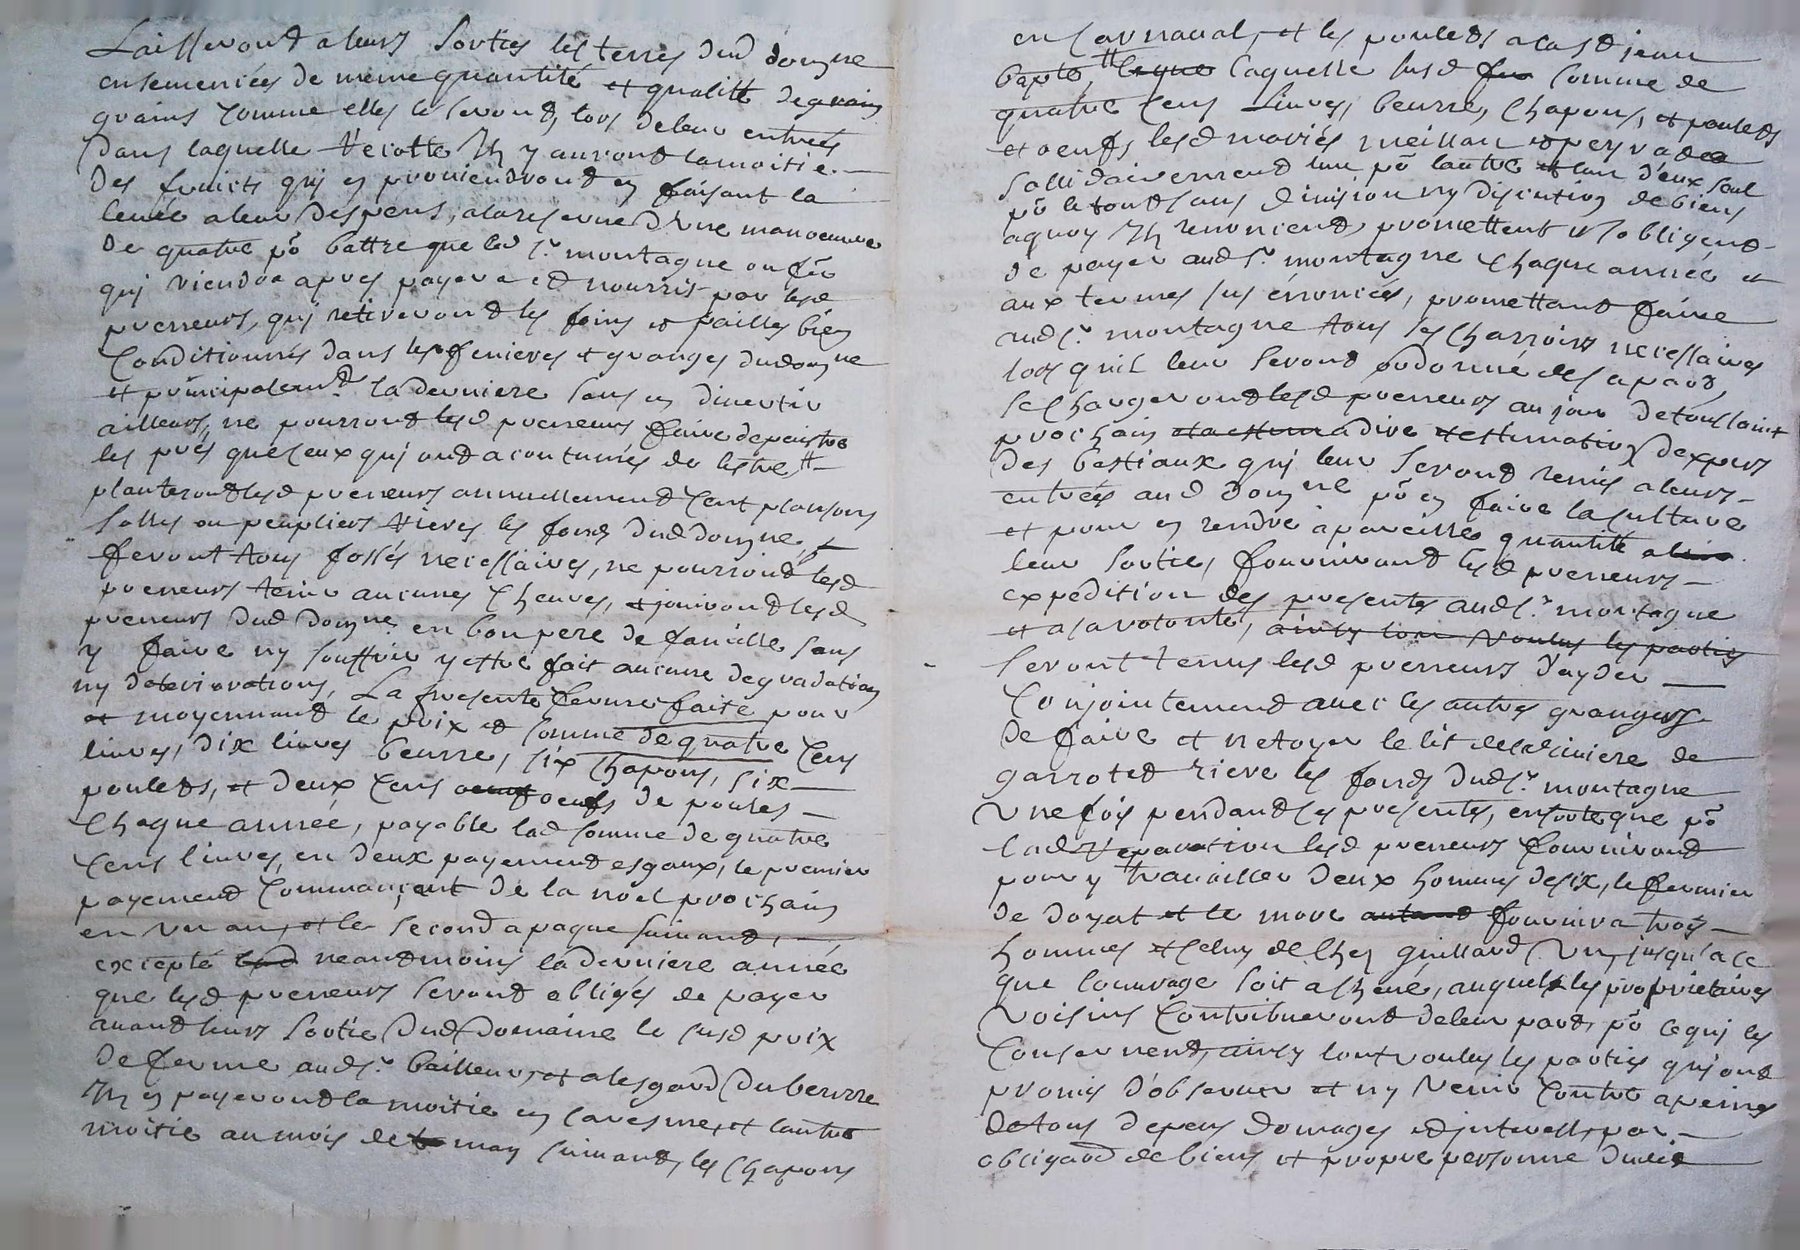 Laisseront a leurs sorties les terres dud domgne
ensemencées de meme quantité et qualité de grains
grains comme elles le seront, lors de leur entrées
Dans laquelle recolte Ils y auront la moitie.
Des fruicts qui en proviendront en faisant la
levée a leur despens, a la reserve d'une manoeuvre
De quatre po battre que led Sr. montagne ou fer
qui viendra apres payera et nourris par lesd
preneurs, qui retireront les foins et pailles bien
Conditionnés dans les fenieres et granges dud domgne
et principalemt la derniere sans en divertir
ailleurs, ne pourront lesd preneurs faire depaistre
les prés que ceux qui ont acoutumés de lestre,
planteront lesd preneurs annuellement cent plansons
Solles ou peupliers rieres les fonds dud domgne,
feront tous fossés necessaires, ne pourront lesd
preneurs tenir aucunes Cheuves, et jouiront lesd
preneurs dud domgne en bon pere de famille sans
y faire ny souffrir y estre fait aucune degradation
ny deteriorations, La presente ferme faite pour
et moyennant le prix et somme de quatre Cens
livres, dix livres beurre, six Chapons, six
poulets, et deux Cens oeufs de poules
Chaque année, payable lad somme de quatre
Cens livres, en deux payement esgaux, le premier
payement Commançant de la noel prochain
en un an, et le second a paque suivant,
excepté neantmoins la derniere année
que lesd preneurs seront obligés de payer
avant leurs sortie dud Domaine le susd prix
de ferme aud Sr. bailleur, et a lesgard du beurre
Ils en payeront la moitie en caresme, et lautre
moitie au mois de may suivant, les Chapons
en Carnaval, et les poulets a la St jean
bapte, laquelle susd somme de
quatre Cens Livres, beurre, Chapons, et poulets
et oeufs lesd mariés meillan et peyrade
sollidairement lun po lautre et lun d'eux seul
po le tout sans division ny discution de biens
aquoy Ils renoncient promettent et sobligent
de payer aud Sr. montagne Chaque année et
aux termes sus énoncées, promettant faire
aud Sr. montagne tous les Charrois necessaires
lors quil leur seront ordonné de sa part,
se Chargeront lesd preneurs au jour de toussaint
prochain a dire et estimation dexpers
des bestiaux qui leur seront remis a leurs
entrées aud domgne po en faire la culture
et pour en rendre a pareille quantité a
leur sortie, fourniront lesd preneurs
expedition des presentes aud Sr. montagne
et a sa volonté, ainsy lon voulu les parties
seront tenus lesd preneurs d'ayder
Conjointement avec les autres grangers
De faire et netoyer le lit de la riviere de
garrotet riere les fonds dud Sr. montagne
Une fois pendant les presentes, ensorte que po
lad reparation lesd preneurs fourniront
pour y travailler deux hommes de six, le fermier
de doyat et le more fournira trois
hommes et celuy de Chez guillard Un, jusqu'a ce
que louvrage soit achevé, auquel les proprietaires
Voisins Contribueront de leur part, po ce qui les
Consernent, ainsy lont voulu les parties qui ont
promis d'observer et ny venir Contre a peines
de tous depens domages et interests, par
obligaon de biens et propre personne dudit